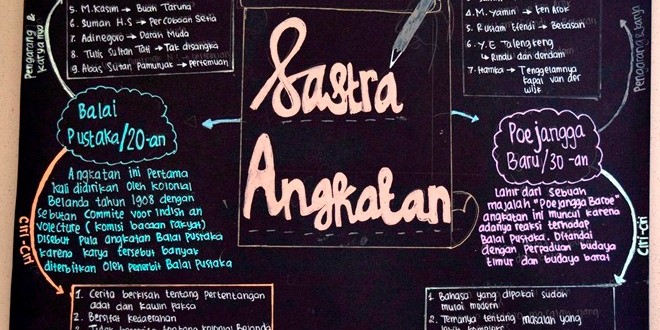 5. M. Kasim → Buah Taruna
6. Suman H.S → Percobaan Setia
7. Adinegoro → Darah Muda
8. Tulis Sultan Tati → Tak disangka
9. Abas Sutan Pamunjak → Pertemuan
Pengarang &
Karyanya
Balai
Pustaka/20-an
Angkatan ini Pertama
kali didirikan oleh kolonial
Belanda tahun 1908 dengan
sebutan Commite voor Indish an
Volecture ( komisi bacaan rakyat)
Disebut Pula angkatan Balai Pustaka
karena karya tersebut banyak
diterbitkan oleh Penerbit Balai Pustaka
Ciri-Ciri
1. Cerita berkisah tentang Pertentangan
adat dan kawin paksa
2. Bersifat kedaerahan
Sastra
Angkatan
4. M. Yamin → Ken Arok
5. Rustam Efendi → Bebasari
6. Y.E Tatengkeng
↳ Rindu dan dendam
7. Hamka → Tenggelamnya
Kapal van der
wijk
Pengarang & karya
Poejangga
Baru/30-an
Lahir dari sebuah
majalah "Poejangga Baroe"
angkatan ini muncul karena
adanya reaksi terhadap
Balai Pustaka. Ditandai
dengan Perpaduan budaya
timur dan budaya barat
Ciri-Ciri
1. Bahasa yang dipakai sudah
mulai modern
2. Temanya tentang masalah yang